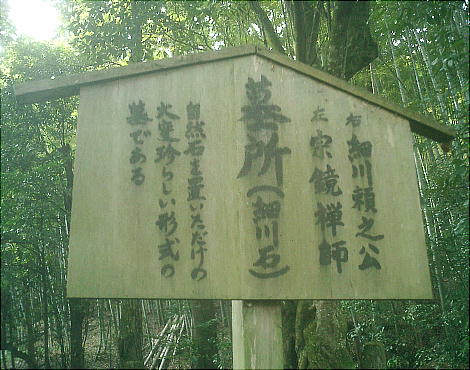 右 細川頼之公
左 宗鏡禅師
墓所(細川石)
自然石を置いただけの
大変珍らしい形式の
墓である